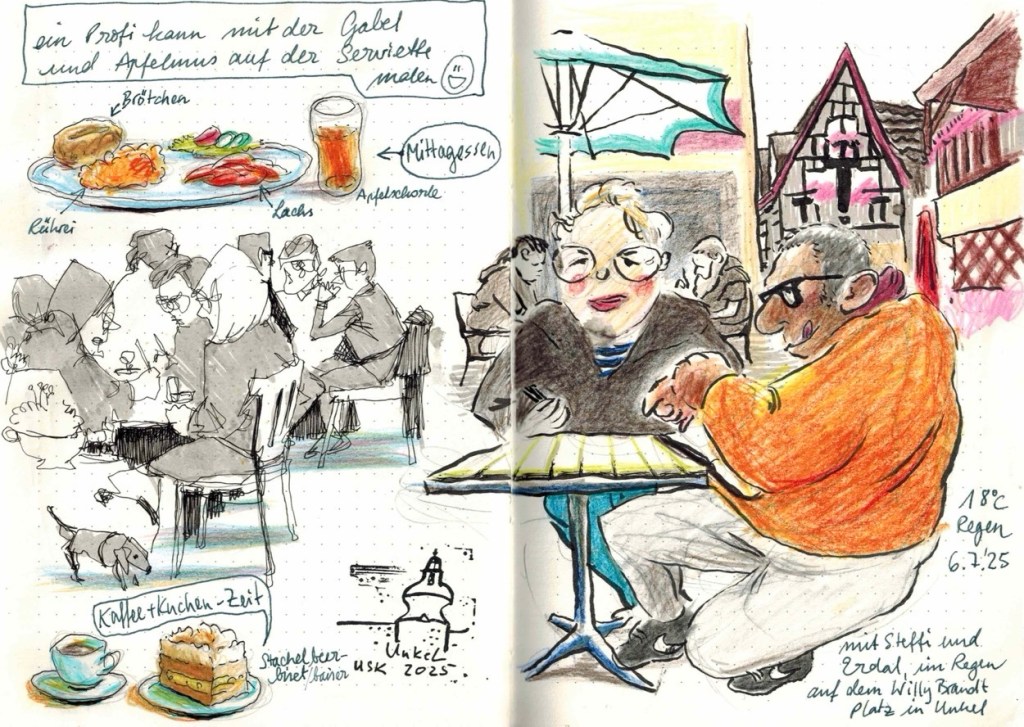 ein Profi kann mit der Gabel
und Apfelmus auf der Serviette
malen
Brötchen
Mittagessen
Apfelschorle
Lachs
Rührei
Kaffee+Kuchen-Zeit
Stachelbeer-
baiser
Unkel
USK 2025
18°C
Regen
6.7.25
mit Steffi und
Erdal, im Regen
auf dem Willy Brandt
Platz in Unkel